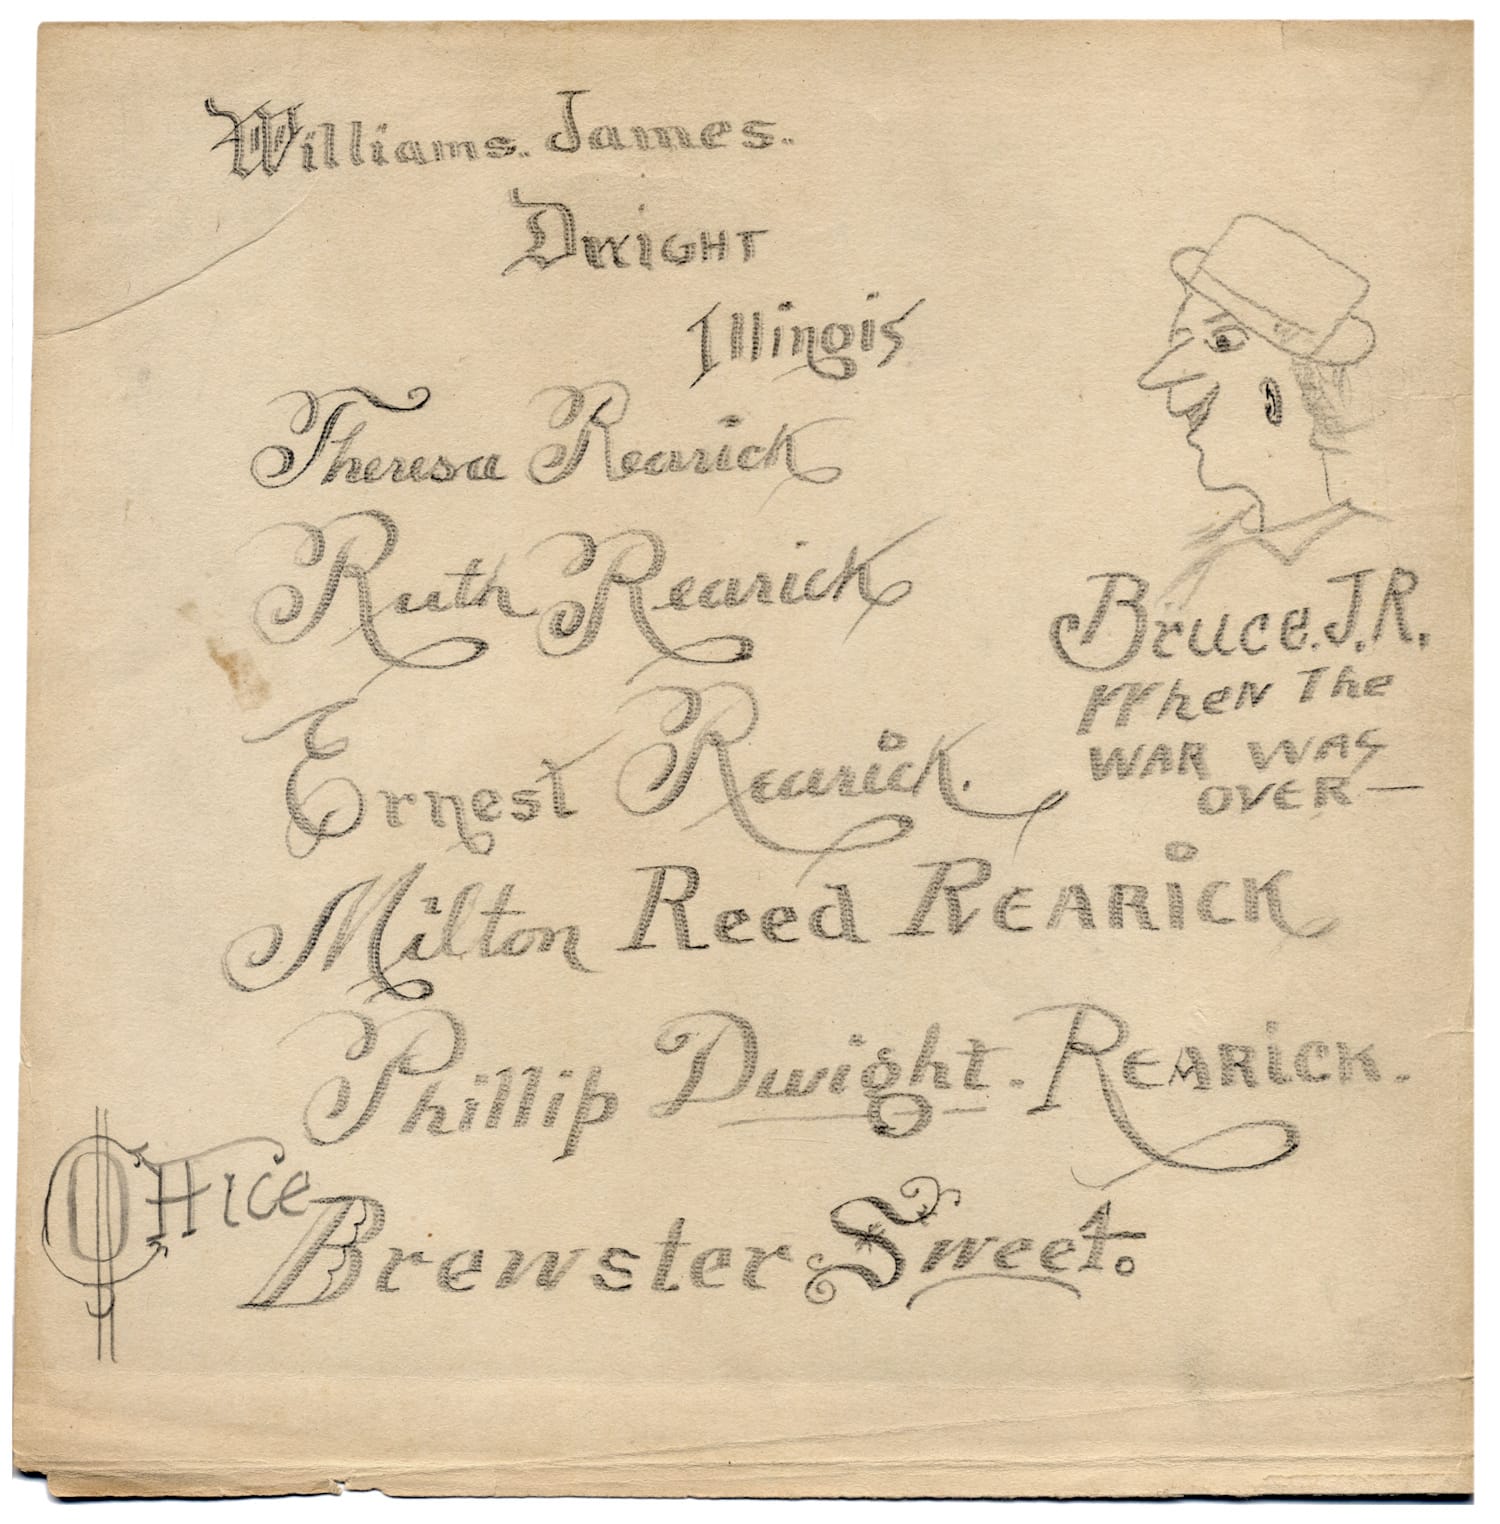 Williams. James.
Dwight
Illinois
Theresa Rearick
Ruth Rearick
Bruce. J.R.
When The
WAR WAS
OVER—
Ernest Rearick.
Milton Reed REARICK
Phillip Dwight. REARICK.
Office
Brewster Sweet.